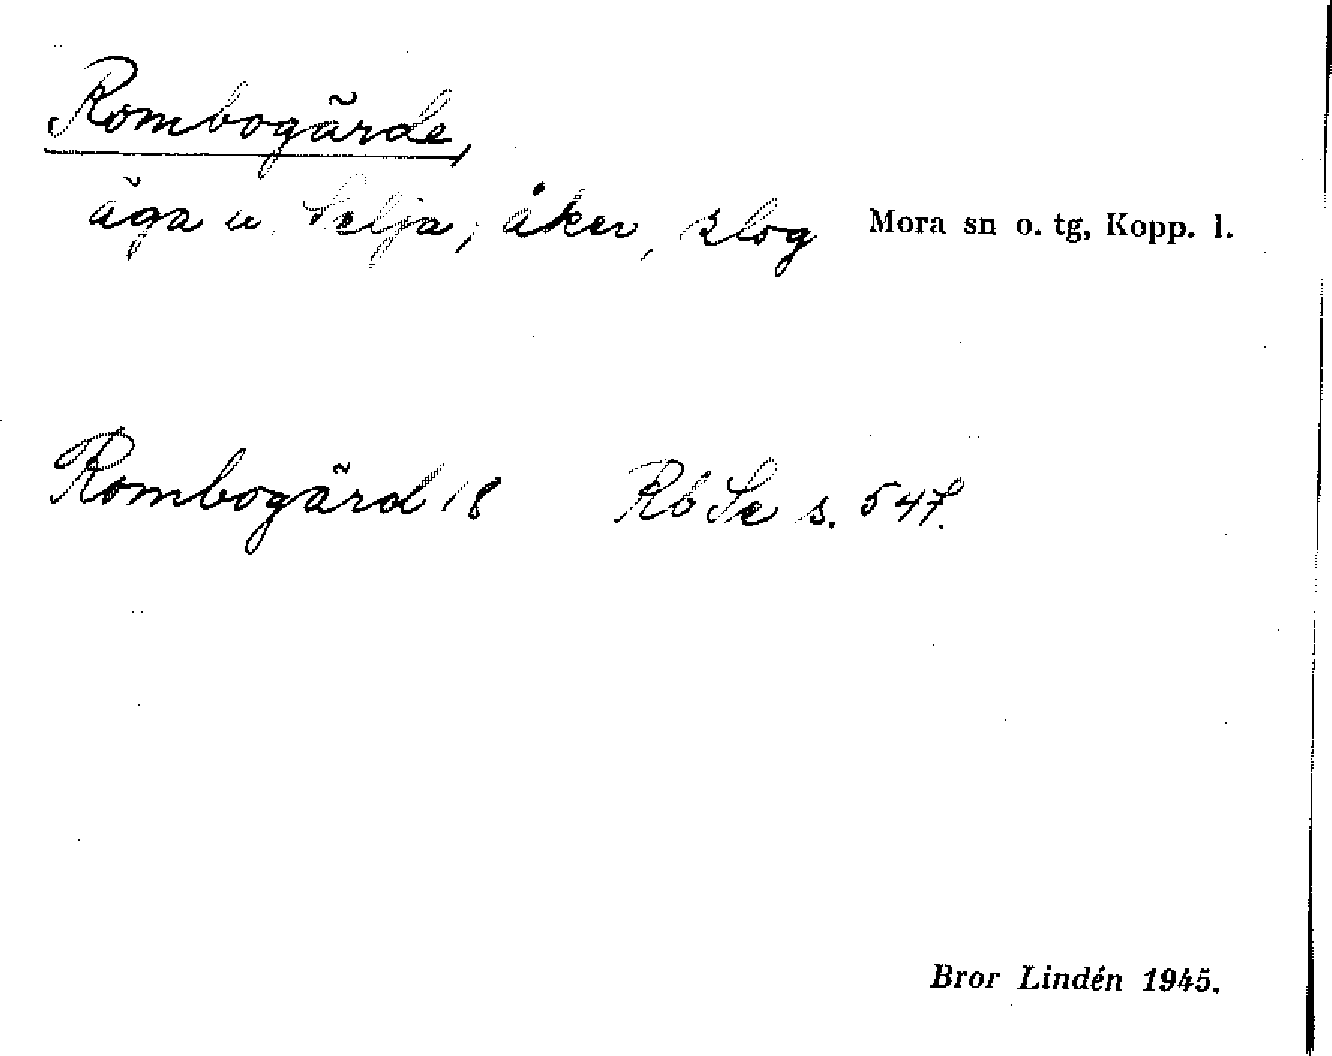 Rombogärde,
äga u. Selja, åker, slog Mora sn o. tg, Kopp. l.
Rombogärd 18 Rb Se s. 547.
Bror Lindén 1945.